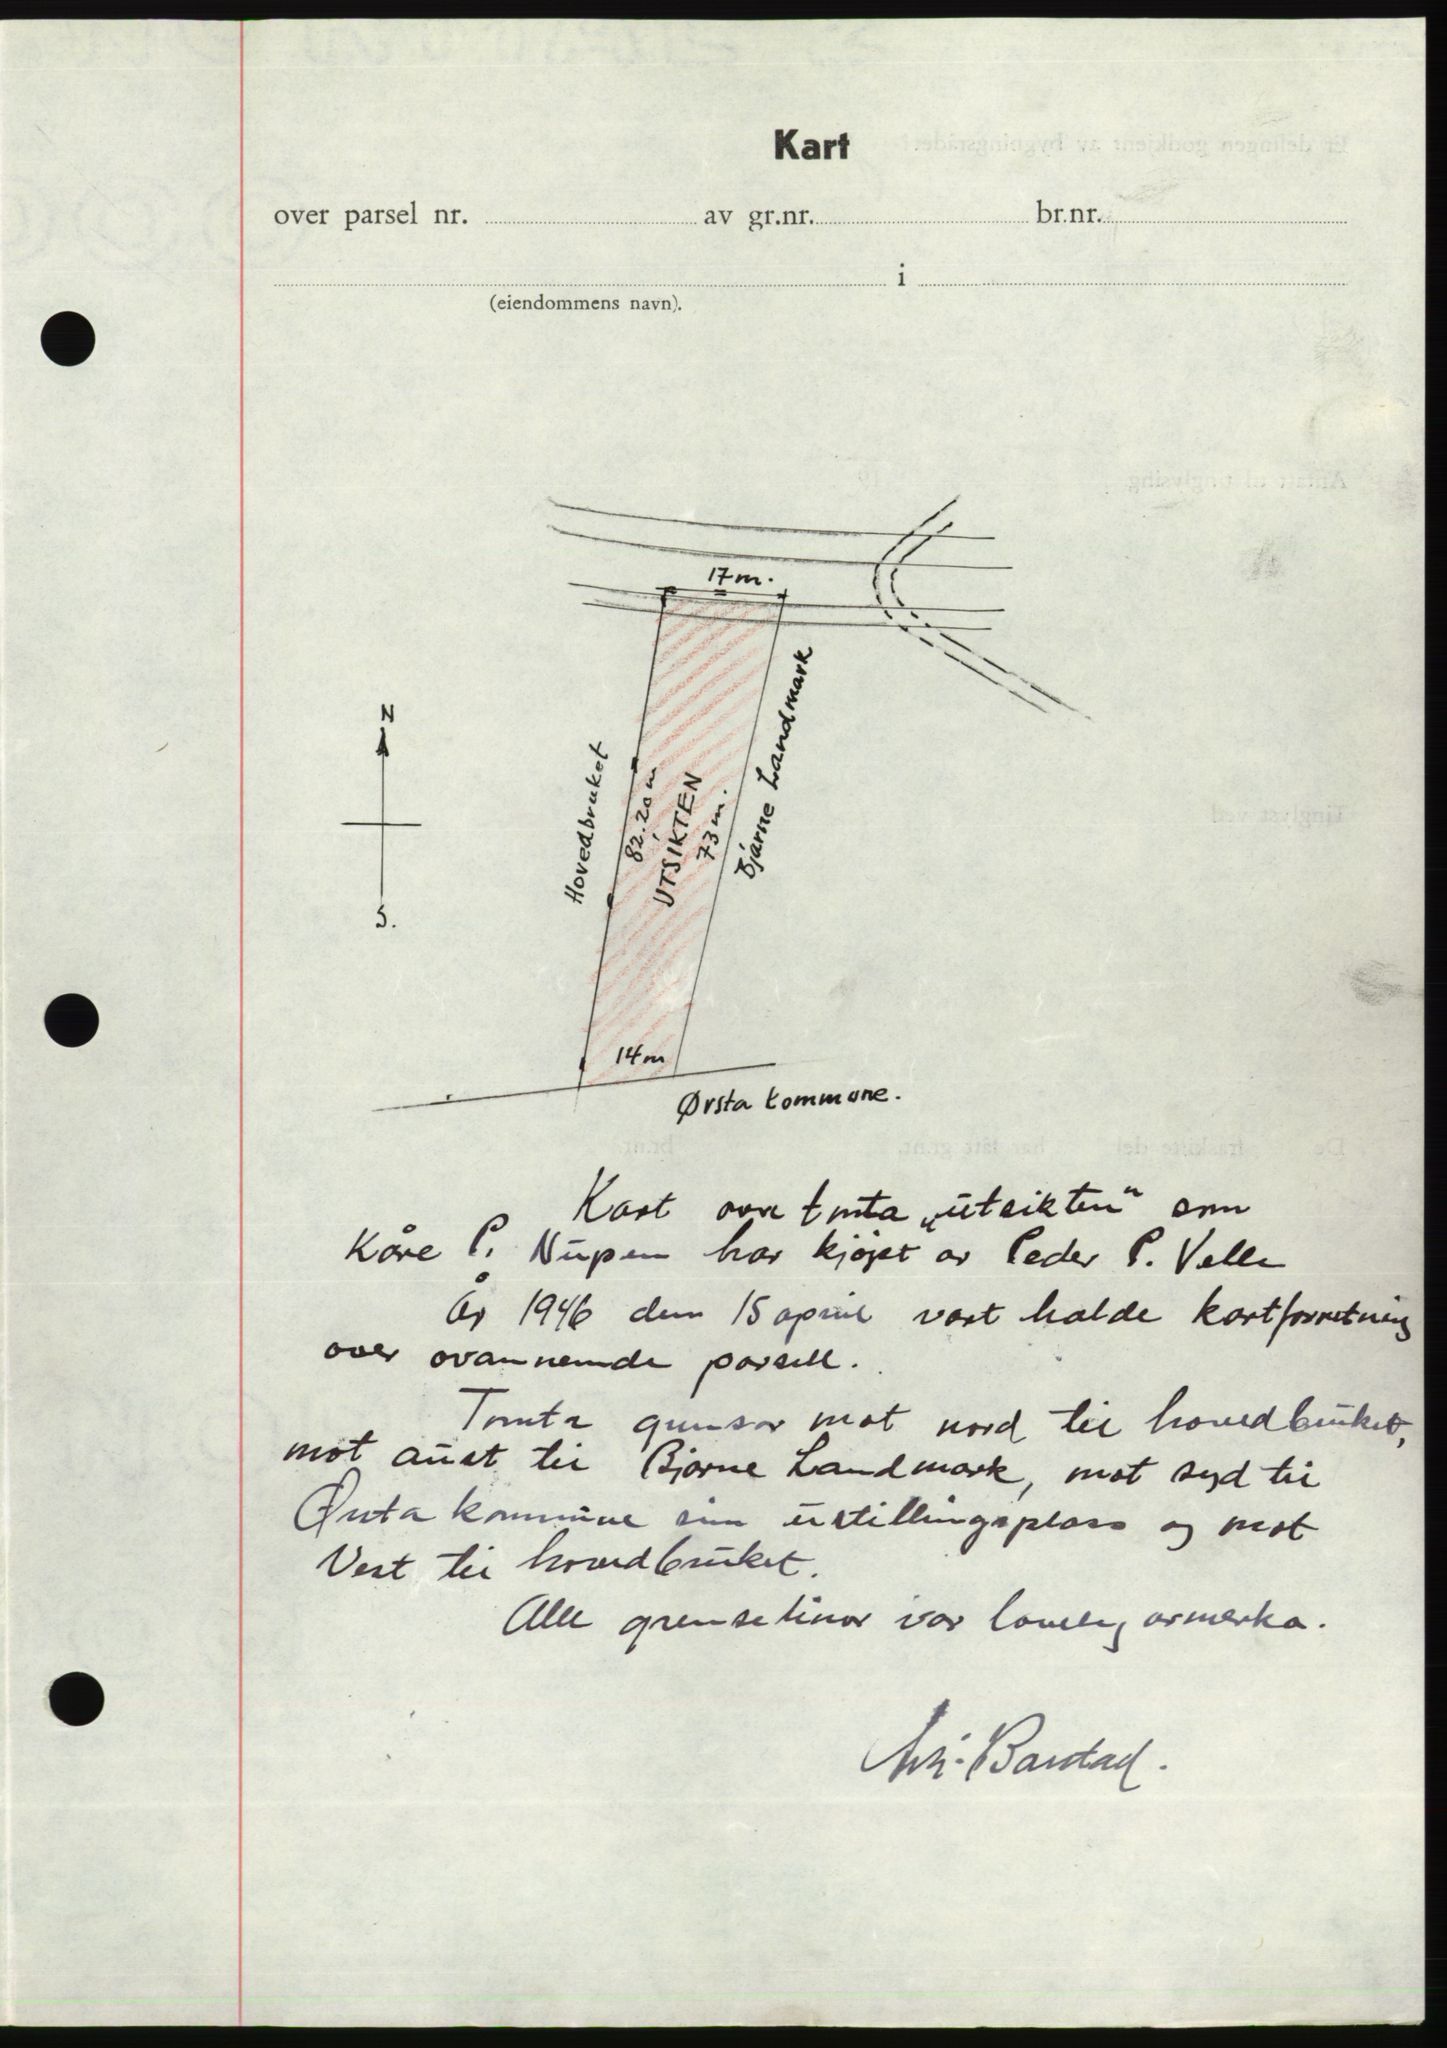 Kart
over parsel nr. av gr.nr. br.nr.
i
(eiendommens navn).
17 m.
N
Hovedbruket
82.20 m
UTSIKTEN
73 m.
Bjarne Landmark
S.
14 m
Ørsta kommune.
Kart over tomta „utsikten" som
Kåre P. Nupen har kjøpt av Peder P. Velle
År 1946 den 15 april vart halde kartforretning
over ovannemde parsell.
Tomta grensar mot nord til hovedbruket,
mot aust til Bjarne Landmark, mot syd til
Ørsta kommune sin utstillingsplass og mot
Vest til hovedbruket.
Alle grenselinor var lovleg avmerka.
Barstad.